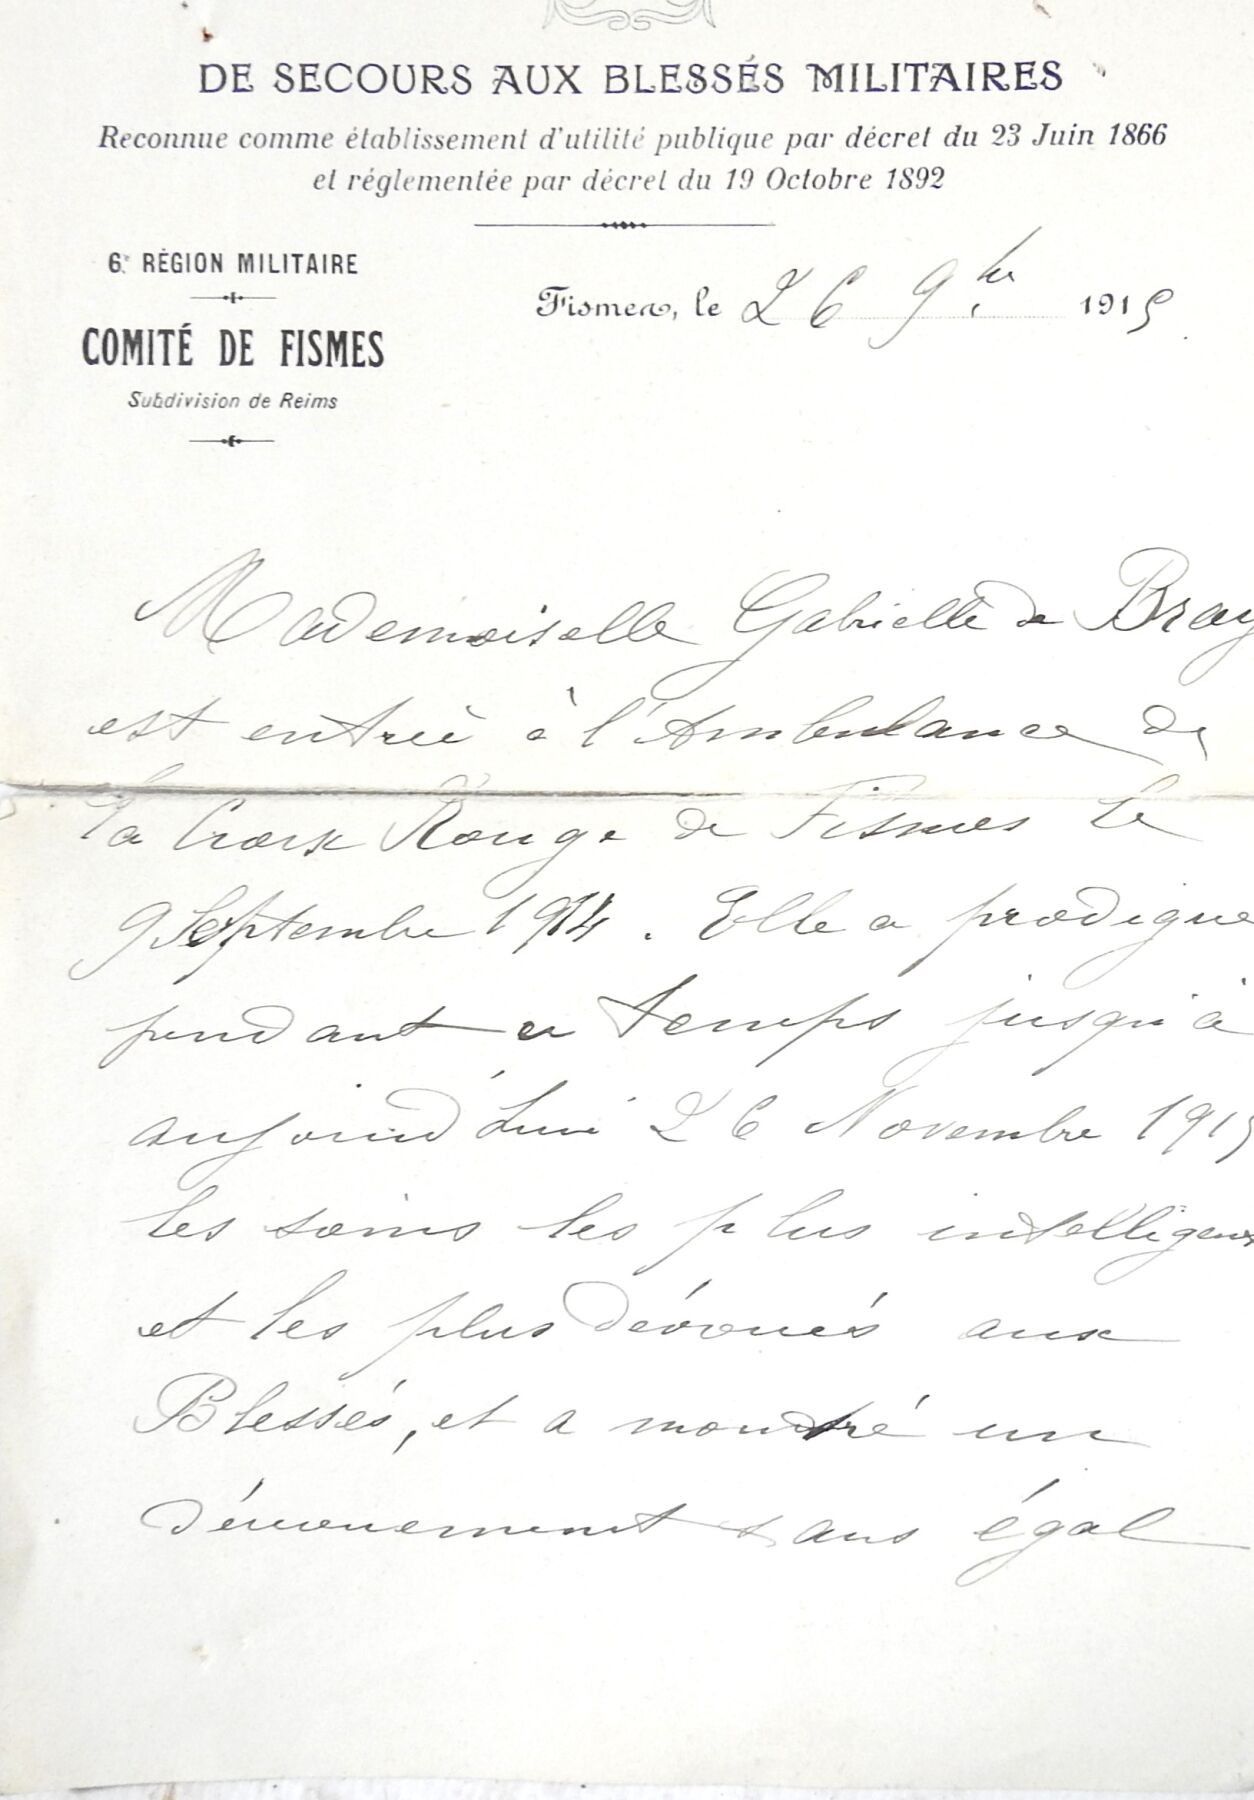 DE SECOURS AUX BLESSÉS MILITAIRES
Reconnue comme établissement d'utilité publique par décret du 23 Juin 1866
et réglementée par décret du 19 Octobre 1892
6e RÉGION MILITAIRE
COMITÉ DE FISMES
Subdivision de Reims
Fismes, le 26 9bre 1915
Mademoiselle Gabrielle de Bray
est entrée à l'Ambulance de
la Croix Rouge de Fismes le
9 Septembre 1914. Elle a prodigué
pendant ce temps jusqu'à
aujourd'hui 26 Novembre 1915
les soins les plus intelligents
et les plus dévoués aux
Blessés, et a montré un
dévouement sans égal